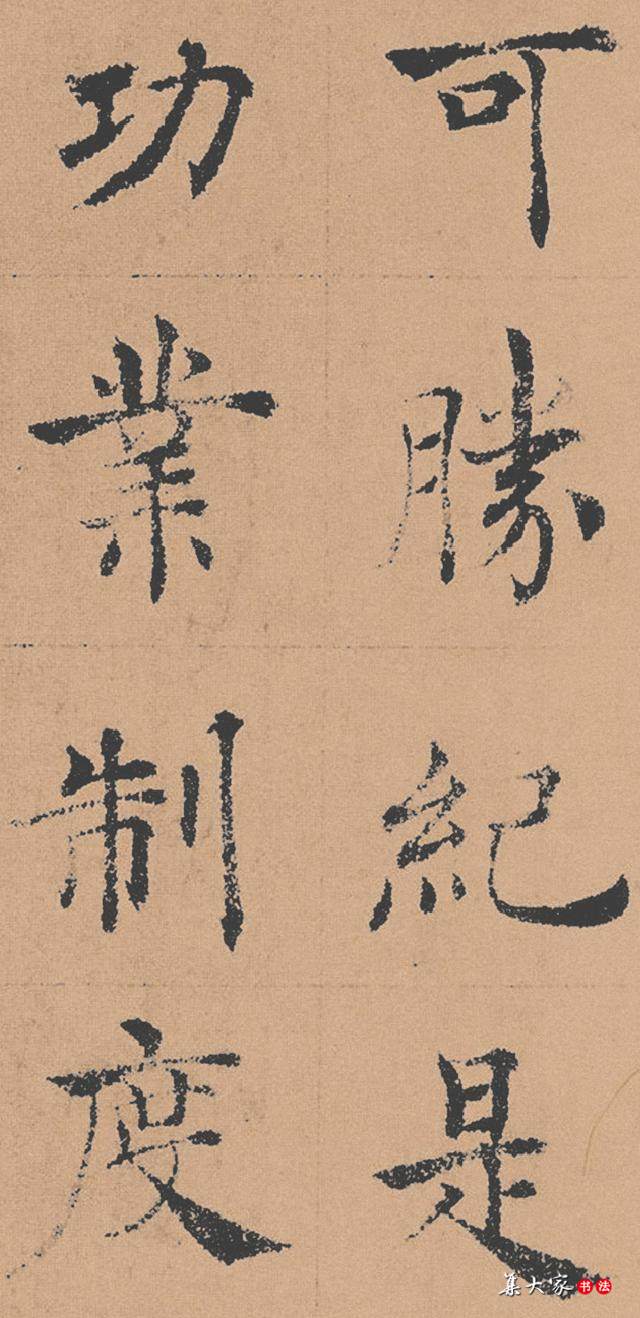 可勝紀是
功業制度
集大家书法